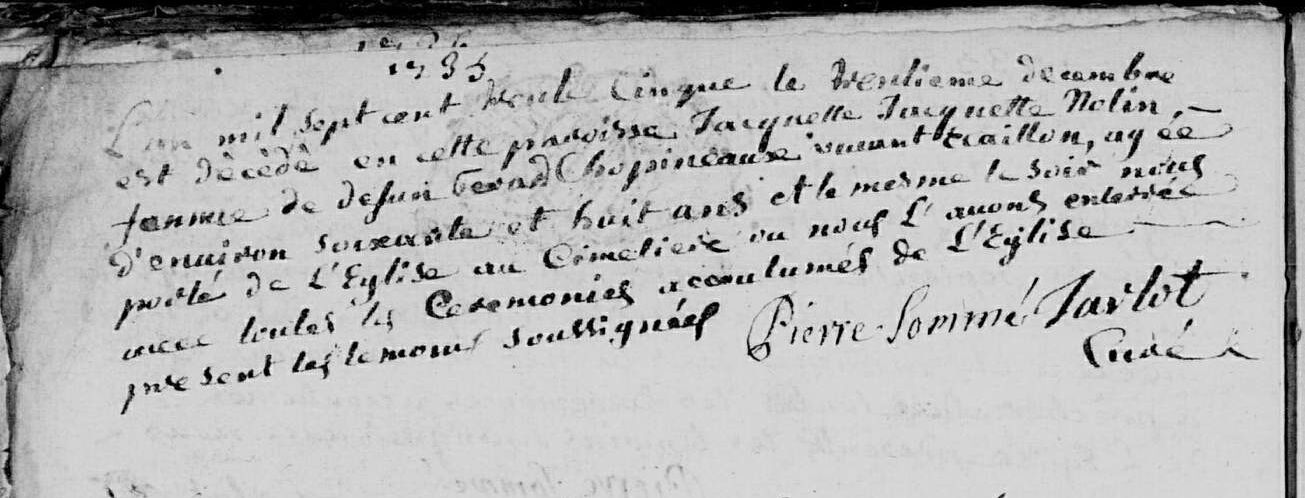 1735
L'an mil sept cent trente Cinque le trentieme decembre
est décèdé en cette paroisse Jacquette Jacquette Nolin,
femme de defun Gerard Chopineaux vivant traillon, agée
d'environ soixante et huit ans et le mesme le soir nous
porté de L'Eglise au Cimetiere ou nous L'avons enterrée
avec toutes les Ceremonies accoutumés de L'Eglise
present les temoins soussignées Pierre Sommé Jarlot
Curé